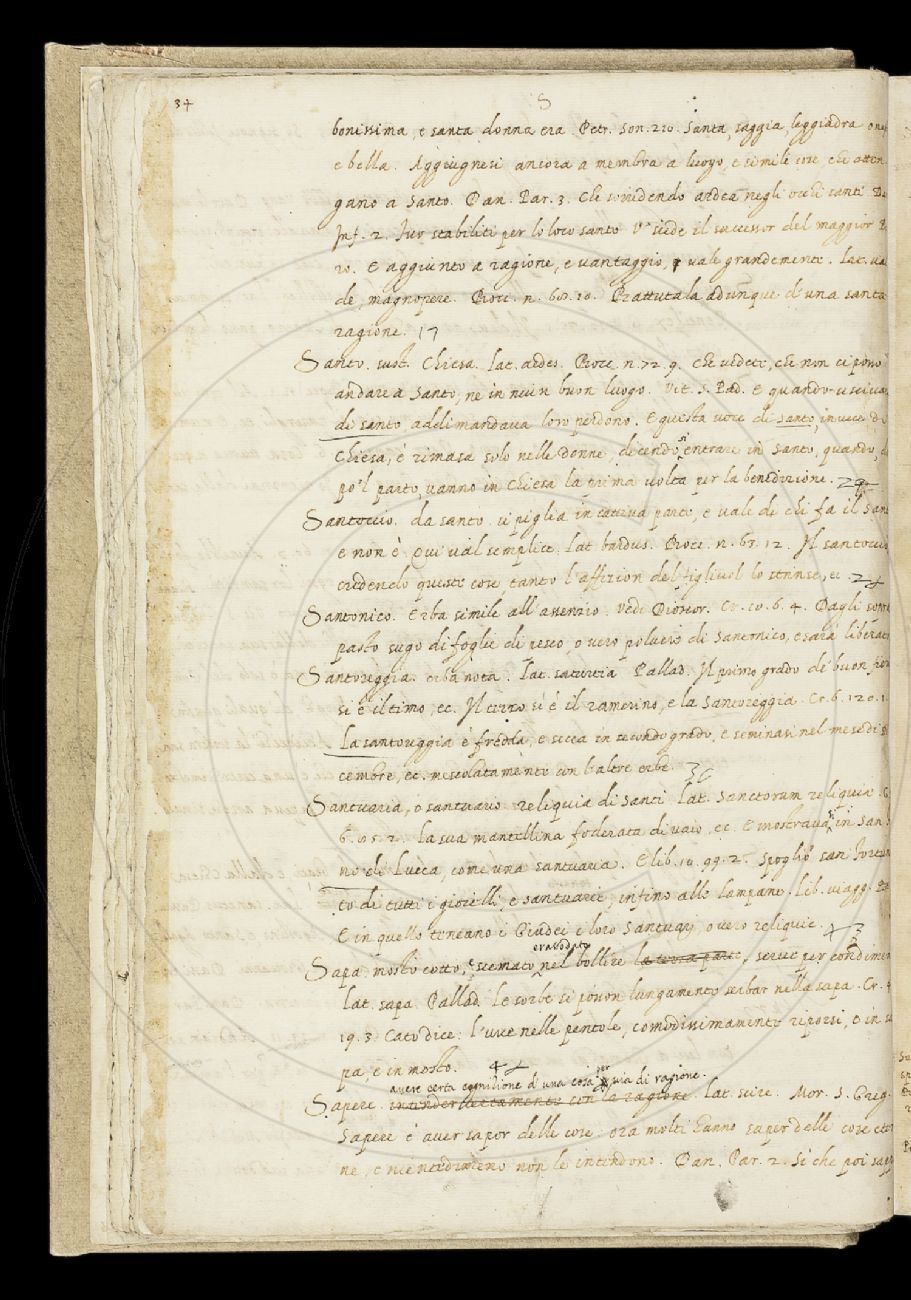 34
S
bonissima, e santa donna era Petr. Son. 210. Santa, saggia, leggiadra one
e bella. Aggiugnesi ancora a membra a luogo, e simili cose che atten
gano a Santo. Dan. Par. 3. Che sorridendo ardea negli occhi santi. Da
Inf. 2. Fur stabiliti per lo loco santo V' siede il successor del maggior P
20. E aggiunto a ragione, e vantaggio, vale grandemente. lat. va
de, magnopere. Bocc. n. 68. 10. Prattutala adunque d'una santa
ragione. 17
Santo. sust. Chiesa. lat. aedes. Bocc. n. 72. 9. Che vedete, che non ci posso
andare a Santo, ne in niun buon luogo. Vit. S. Pad. E quando usciva
di santo addimandava loro perdono. E questa voce di santo, in vece di
Chiesa, è rimasa solo nelle donne, dicendosi entrare in Santo, quando, do
po 'l parto, vanno in Chiesa la prima volta per la benedizione. 29
Santoccio. da santo. si piglia in cattiva parte, e vale di chi fa il San
e non è. Qui val semplice. lat. bardus. Bocc. n. 65. 12. Il santoccio
credendo queste cose, tanto l'affezion del figliuol lo strinse, ec. 24
Santonico. Erba simile all'assenzio. Vedi Dioscor. Cr. 10. 6. 4. Dagli sopra
pasto sugo di foglie di pesco, o vero polvere di Santonico, e sarà liberat
Santoreggia. erba nota. Lat. satureia Pallad. Il primo grado di buon fior
si è il timo, ec. Il terzo si è il ramerino, e la Santoreggia. Cr. 6. 120. 1.
La santoreggia è fredda, e secca in secondo grado, e seminasi nel mese di di
cembre, ec. mescolatamente con l'altre erbe. 36
Santuaria, o santuario. reliquia di Santi. Lat. Sanctorum reliquiae. G
6. 85. 2. La sua mantellina foderata di vaio, ec. E mostravasi in San
no di Lucca, come una santuaria. E lib. 10. 99. 2. Spogliò san Fortun
to di tutti i gioielli, e santuarie, infino alle lampane. lib. viagg.
E in quello teneano i Giudei i loro Santuarj, ovvero reliquie. 43
Sapa. mosto cotto, e scemato, e rassodato nel bollire la terza parte, serve per condimen
Lat. sapa. Pallad. Le sorbe si posson lungamente serbar nella sapa. Cr. 4
19. 3. Cato dice: l'uve nelle pentole, comodissimamente riporsi, e in sa
pa, e in mosto. 48
avere certa cognizione d'una cosa per via di ragione.
Sapere. intender certamente con la ragione. lat. scire. Mor. S. Greg.
Sapere è aver sapor delle cose: ora molti hanno saper delle cose eter
ne, e nientedimeno non le intendono. Dan. Par. 2. Si che poi sapp